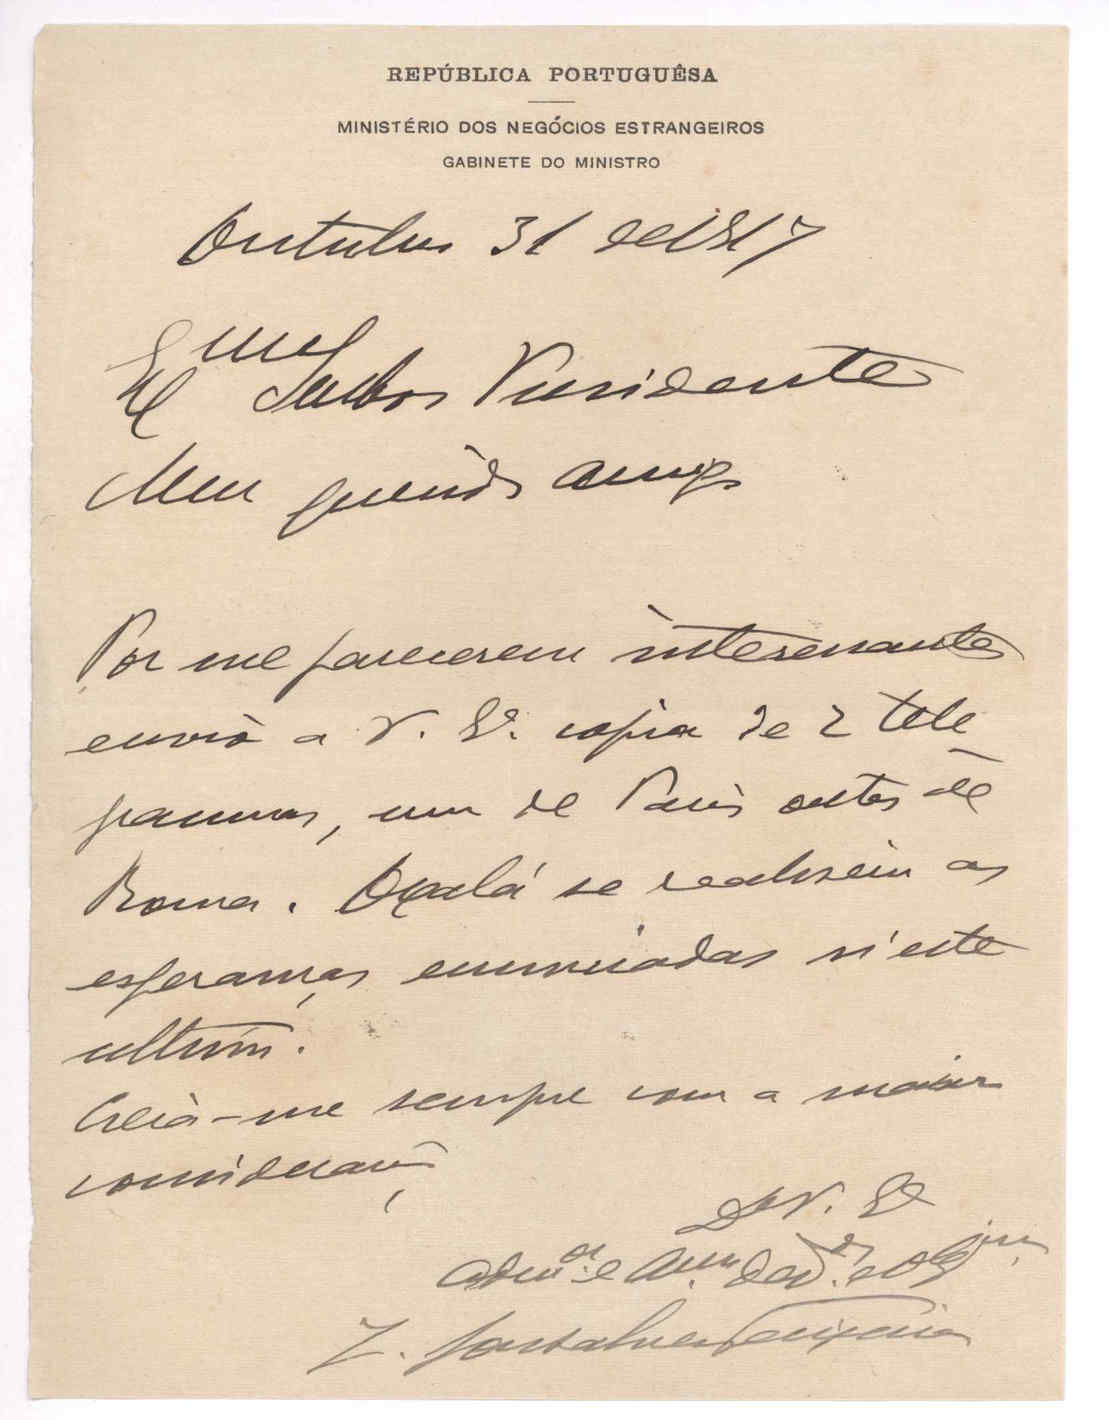 REPÚBLICA PORTUGUÊSA
MINISTÉRIO DOS NEGÓCIOS ESTRANGEIROS
GABINETE DO MINISTRO
Outubro 31 de 1917
Exmo
Senhor Presidente
Meu querido amigo
Por me parecerem interessantes
envio a V. Ex. copia de 2 tele
gramas, um de Paris outro de
Roma. Oxalá se realisem as
esperanças enunciadas n'este
ultimo.
Creia-me sempre com a maior
consideração
De V. Ex
admor. e amo. dedo. e obgmo.
T.